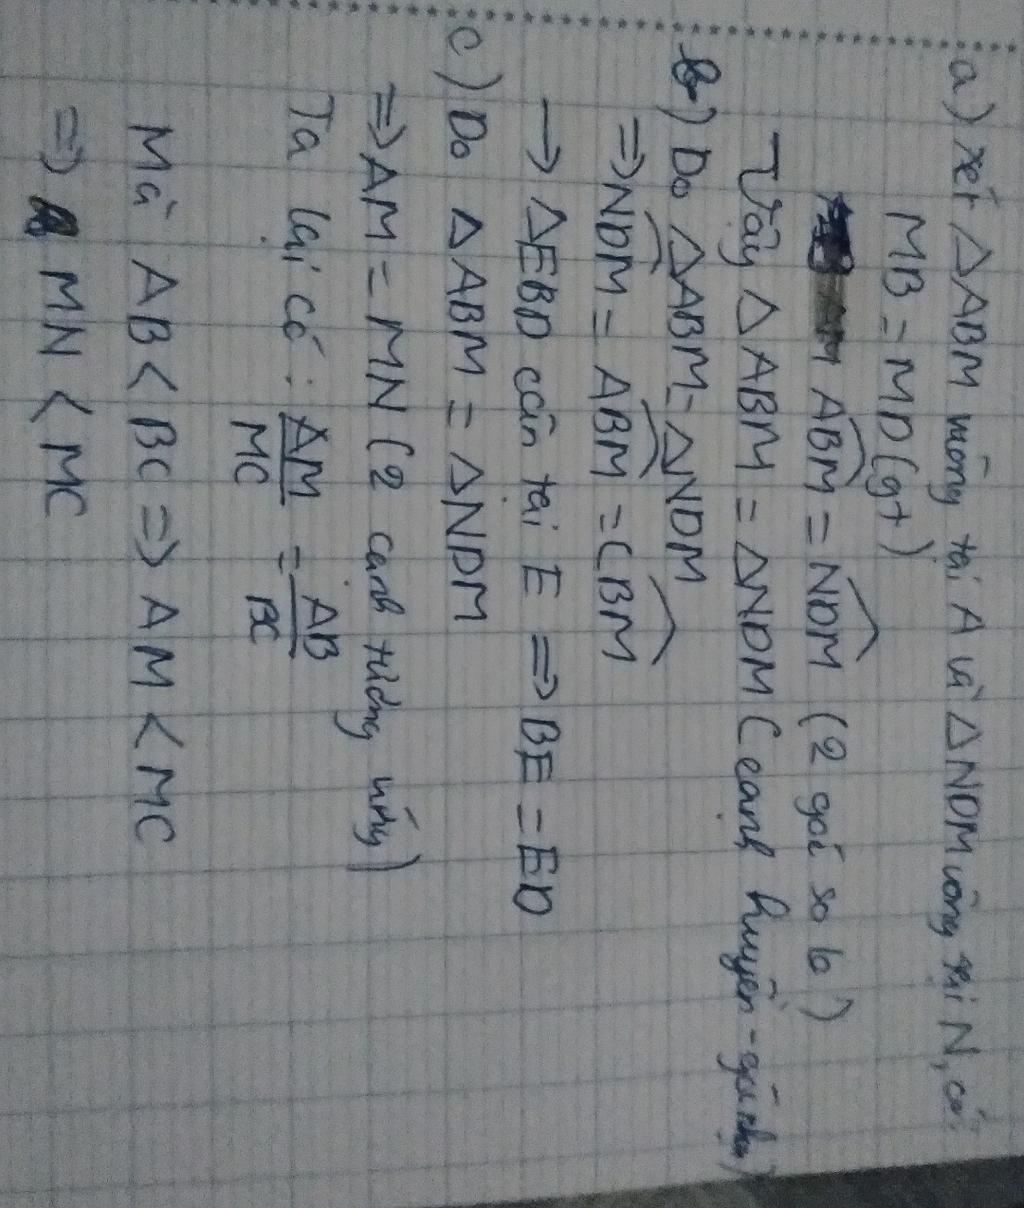 a) xét ΔABM vuông tại A và ΔNDM vuông tại N, có:
MB = MD (gt)
ABM = NDM (2 góc so le)
Vậy ΔABM = ΔNDM (cạnh huyền - góc nhọn)
b) Do ΔABM = ΔNDM
=> NDM = ABM = CBM
→ ΔEBD cân tại E => BE = ED
c) Do ΔABM = ΔNDM
=> AM = MN (2 cạnh tương ứng)
Ta lại có: AM/MC = AB/BC
Mà AB < BC => AM < MC
=> MN < MC